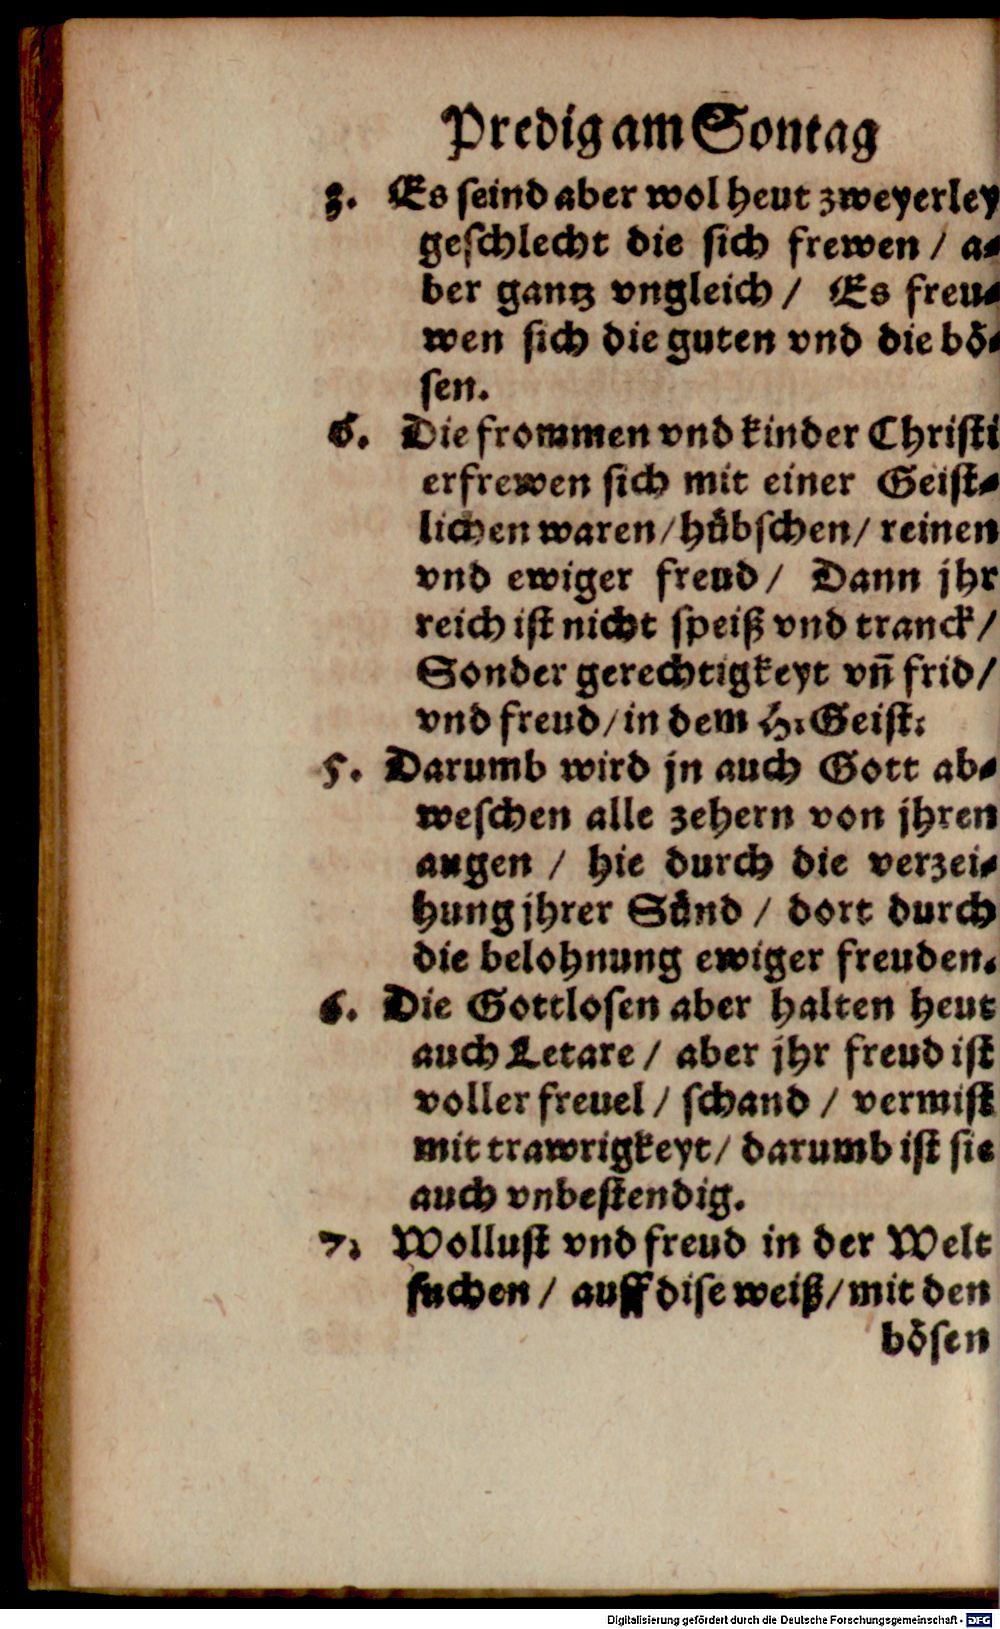 Predig am Sontag
3. Es seind aber wol heut zweyerley
geschlecht die sich frewen / a⸗
ber gantz vngleich / Es freu⸗
wen sich die guten vnd die boͤ⸗
sen.
6. Die frommen vnd kinder Christi
erfrewen sich mit einer Geist⸗
lichen waren / huͤbschen / reinen
vnd ewiger freud / Dann jhr
reich ist nicht speiß vnd tranck /
Sonder gerechtigkeyt vñ frid /
vnd freud / in dem H. Geist.
5. Darumb wird jn auch Gott ab⸗
weschen alle zehern von jhren
augen / hie durch die verzei⸗
hung jhrer Suͤnd / dort durch
die belohnung ewiger freuden.
6. Die Gottlosen aber halten heut
auch Letare / aber jhr freud ist
voller freuel / schand / vermist
mit trawrigkeyt / darumb ist sie
auch vnbestendig.
7. Wollust vnd freud in der Welt
suchen / auff dise weiß / mit den
boͤsen
Digitalisierung gefördert durch die Deutsche Forschungsgemeinschaft - DFG